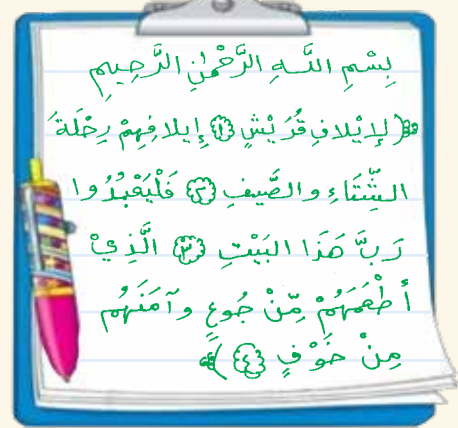 بِسْمِ اللَّـهِ الرَّحْمٰنِ الرَّحِيمِ
﴿لِإيْلافِ قُرَيْشٍ ﴿١﴾ إِيلافِهِمْ رِحْلَةَ
الشِّتَاءِ والصَّيفِ ﴿٢﴾ فَلْيَعْبُدُوا
رَبَّ هَذَا البَيْتِ ﴿٣﴾ الَّذِيْ
أطْعَمَهُمْ مِّنْ جُوعٍ وآمَنَهُم
مِنْ خَوْفٍ ﴿٤﴾﴾